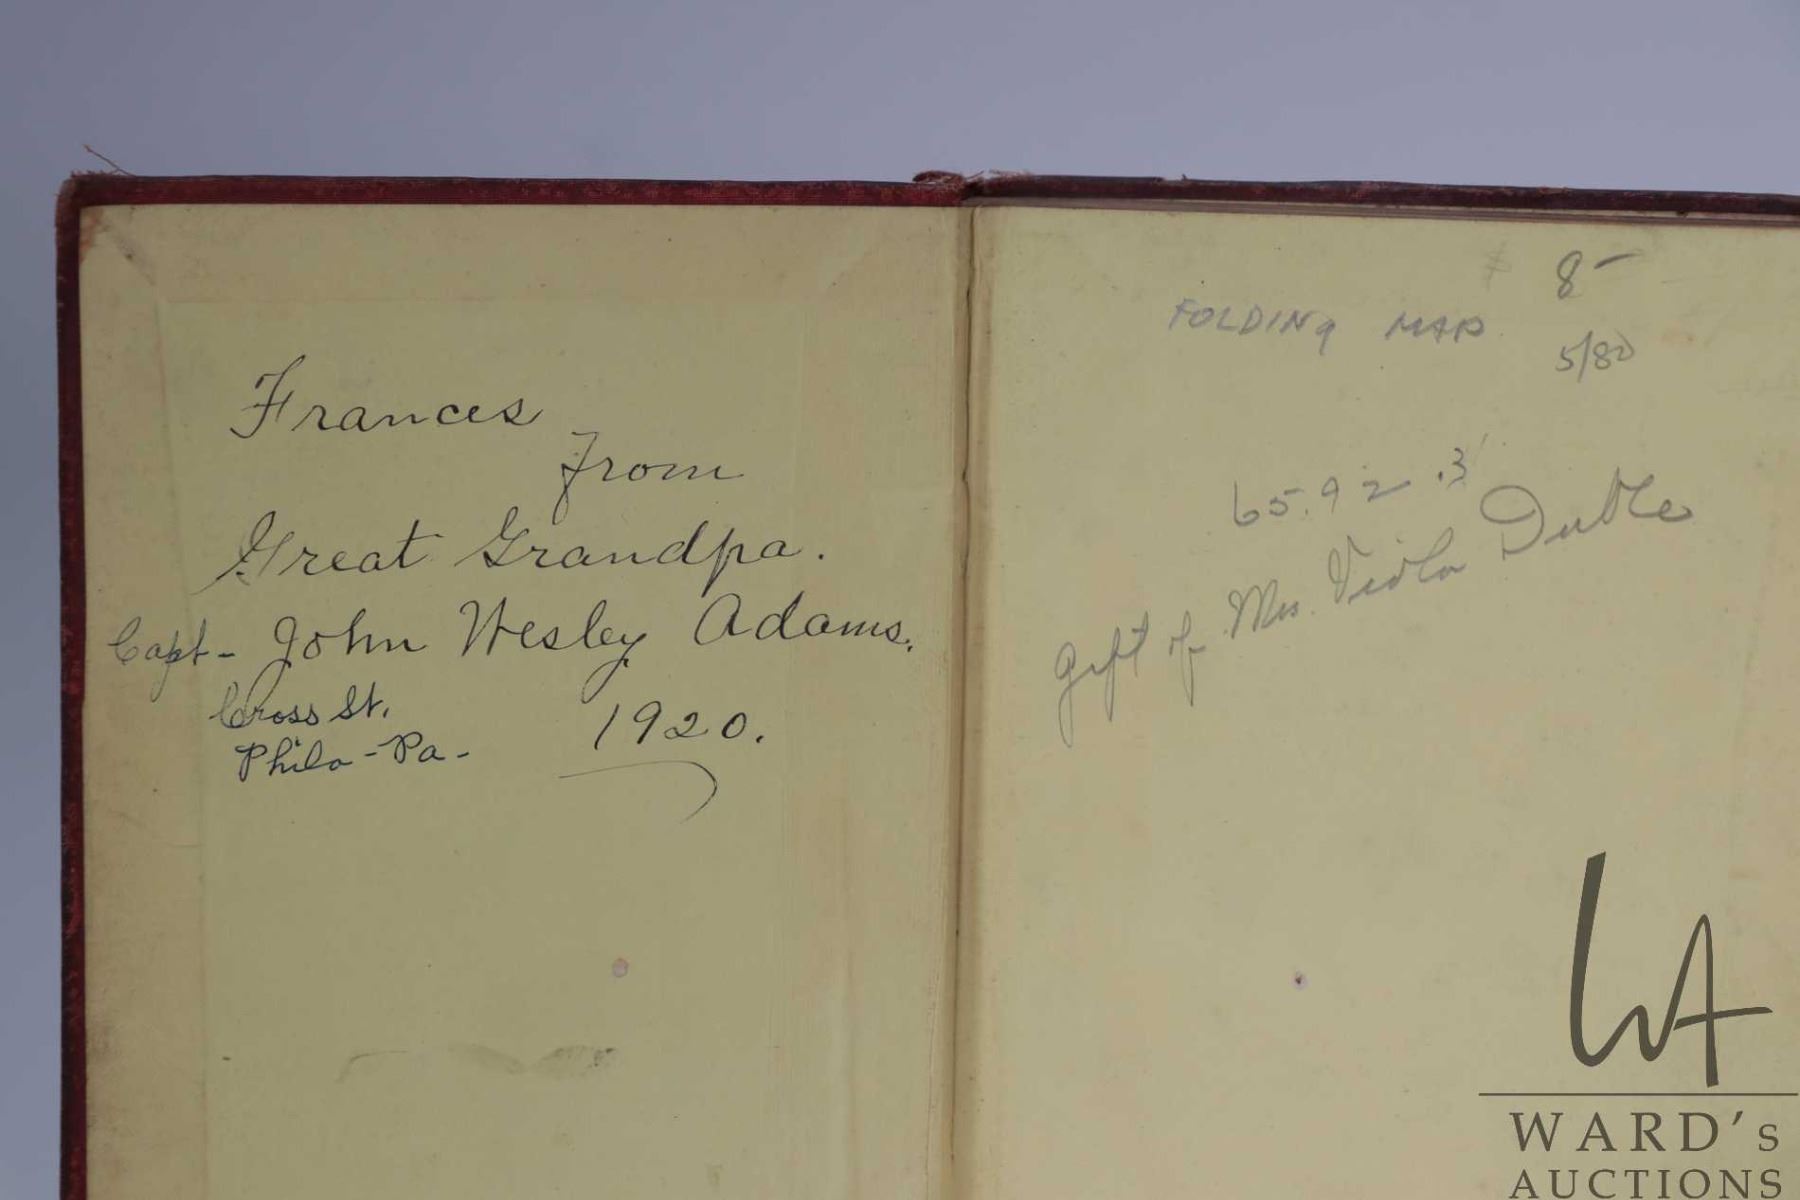 Frances
from
Great Grandpa.
Capt- John Wesley Adams.
Cross St.
Phila-Pa-
1920.
8-
FOLDING MAP
5/80
65.92.3
Gift of Mrs. Viola
WA
WARD's
AUCTIONS